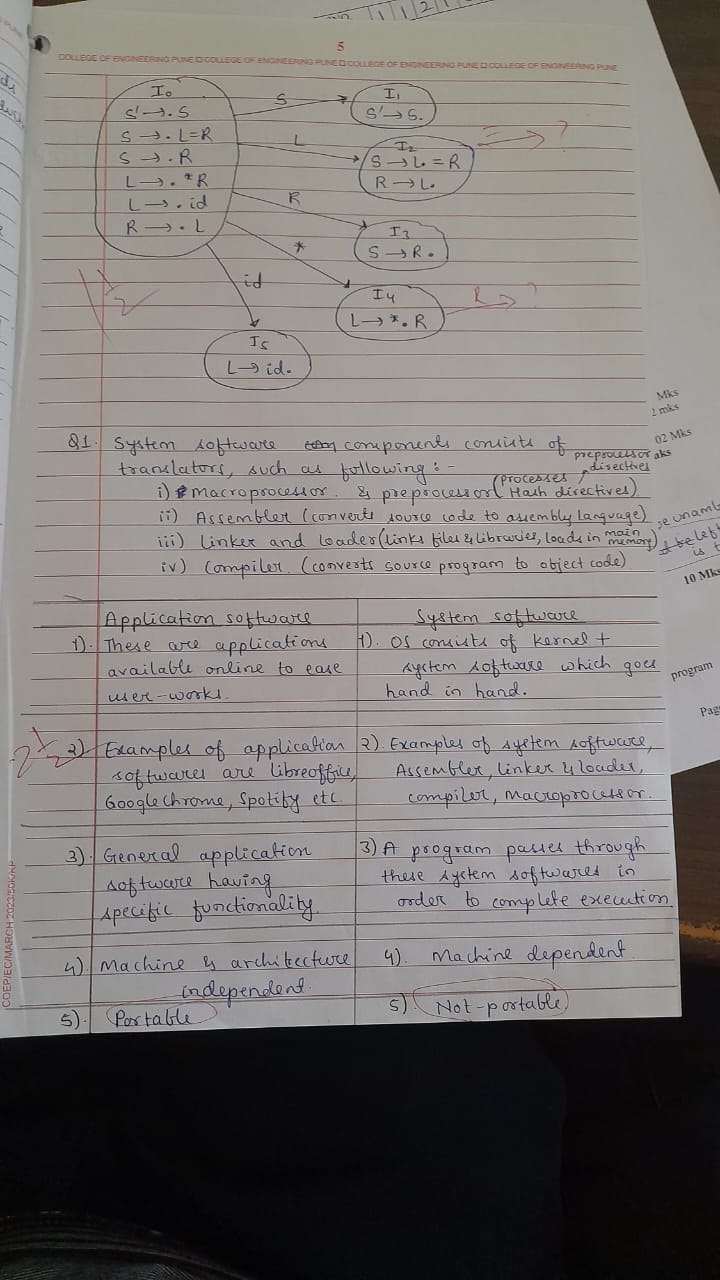 5
COLLEGE OF ENGINEERING PUNE □ COLLEGE OF ENGINEERING PUNE □ COLLEGE OF ENGINEERING PUNE □ COLLEGE OF ENGINEERING PUNE
I₀
S' → . S
S → . L=R
S → . R
L → . *R
L → . id
R → . L
S
I₁
S' → S.
L
I₂
S → L. = R
R → L.
?
R
I₃
S → R.
*
I₄
L → *. R
R
?
id
I₅
L → id.
Q1. System software components consists of
translators, such as following :-
i) Macroprocessor & preprocessor (Processes preprocessor directives / Hash directives)
ii) Assembler (converts source code to assembly language)
iii) Linker and loader (links files & libraries, loads in main memory)
iv) Compiler. (converts source program to object code)
Application software
System software
1). These are applications
available online to ease
user-works.
1). OS consists of Kernel +
system software which goes
hand in hand.
2) Examples of application
softwares are libreoffice,
Google chrome, Spotify etc.
2). Examples of system software,
Assembler, linker & loader,
compiler, Macroprocessor.
3). General application
software having
specific functionality.
3) A program passes through
these system softwares in
order to complete execution.
4). Machine & architecture
independent.
4). Machine dependent.
5). Portable
5) Not-portable
2½
COEP/EC/MARCH 2023/50K/KP
Mks
2 mks
02 Mks
aks
10 Mks
program
Pag